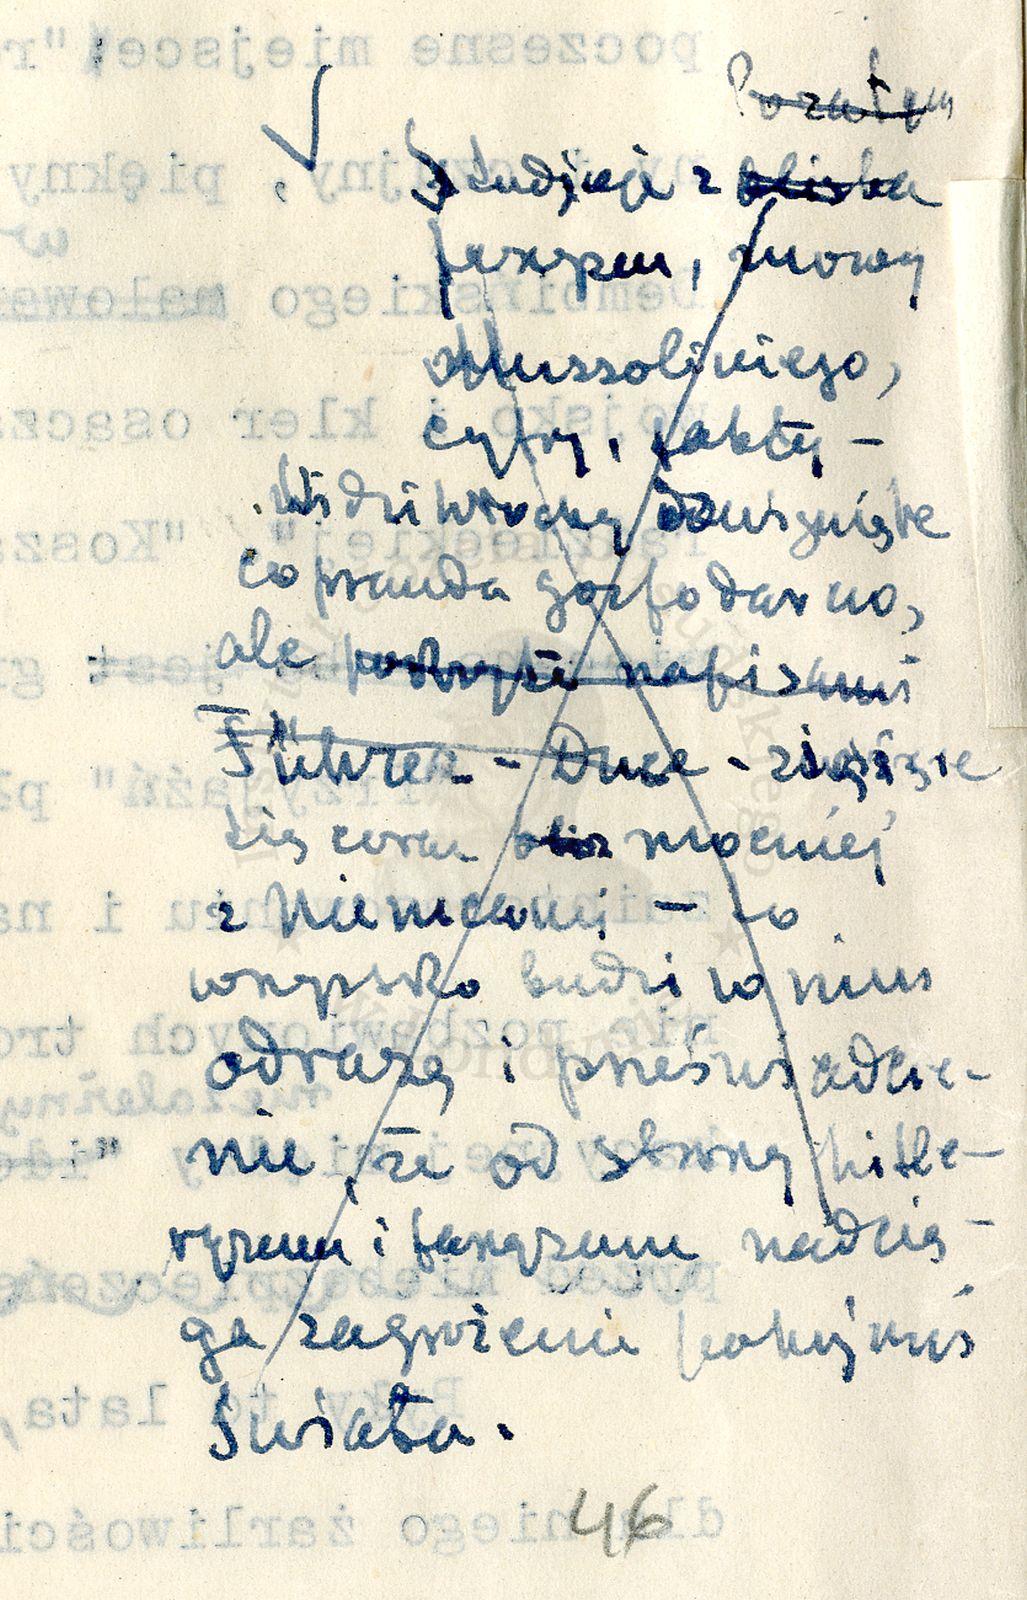 Pozatem
Studjuje z bliska
faszyzm, mowy
Mussoliniego,
cyfry, fakty –
co prawda gospodarno,
ale pokryte napisami
Führer - Duce -
się coraz mocniej
z Niemcami – to
wszystko budzi w nim
odrazę i przeświadcze-
nie, że od strony hitle-
ryzmu i faszyzmu nadcią-
ga zagrożenie pokojowi
świata.
46